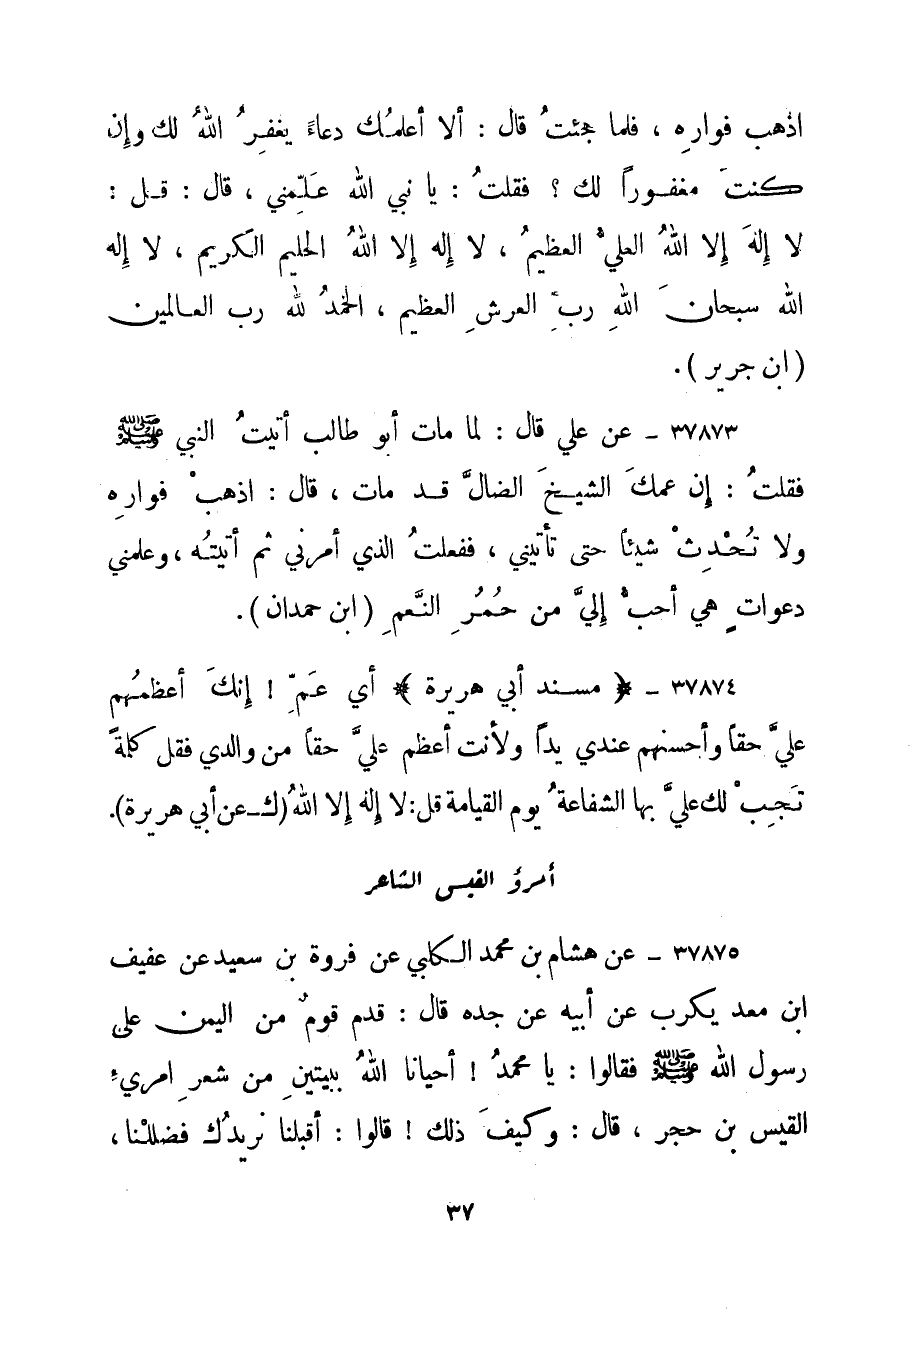 اذهب فواره ، فلما جئتُ قال : ألا أعلمُك دعاءً يغفِرُ اللهُ لك وإن
كنتَ مغفوراً لك ؟ فقلتُ : يا نبي الله عَلّمني ، قال : قل :
لا إلهَ إلا اللهُ العليُّ العظيمُ ، لا إله إلا اللهُ الحليم الكريم ، لا إله
الله سبحانَ اللهِ ربِّ العرشِ العظيم ، الحمدُ لله رب العالمين
( ابن جرير ) .
٣٧٨٧٣ ــ عن علي قال : لما مات أبو طالب أتيتُ النبي ﷺ
فقلتُ : إن عمكَ الشيخَ الضالَّ قد مات ، قال : اذهبْ فوارهِ
ولا تُحْدِثْ شيئاً حتى تأتيني ، ففعلتُ الذي أمرني ثم أتيتُه ، وعلمني
دعواتٍ هي أحبُّ إليَّ من حُمُرِ النَّعمِ ( ابن حمدان ) .
٣٧٨٧٤ ــ ﴿ مسند أبي هريرة ﴾ أي عَمِّ ! إنكَ أعظمُهم
عليَّ حقاً وأحسنهم عندي يداً ولأنت أعظم عليَّ حقاً من والدي فقل كلمةً
تَجِبْ لك عليَّ بها الشفاعةُ يوم القيامة قل : لا إله إلا اللهُ (ك ــ عن أبي هريرة).
أمرؤ القيس الشاعر
٣٧٨٧٥ ــ عن هشام بن محمد الكلبي عن فروة بن سعيد عن عفيف
ابن معد يكرب عن أبيه عن جده قال : قدم قومٌ من اليمن على
رسول الله ﷺ فقالوا : يا محمدُ ! أحيانا اللهُ ببيتينِ من شعرِ امريءِ
القيس بن حجر ، قال : وكيفَ ذلك ! قالوا : أقبلنا نريدُك فضللْنا ،
٣٧